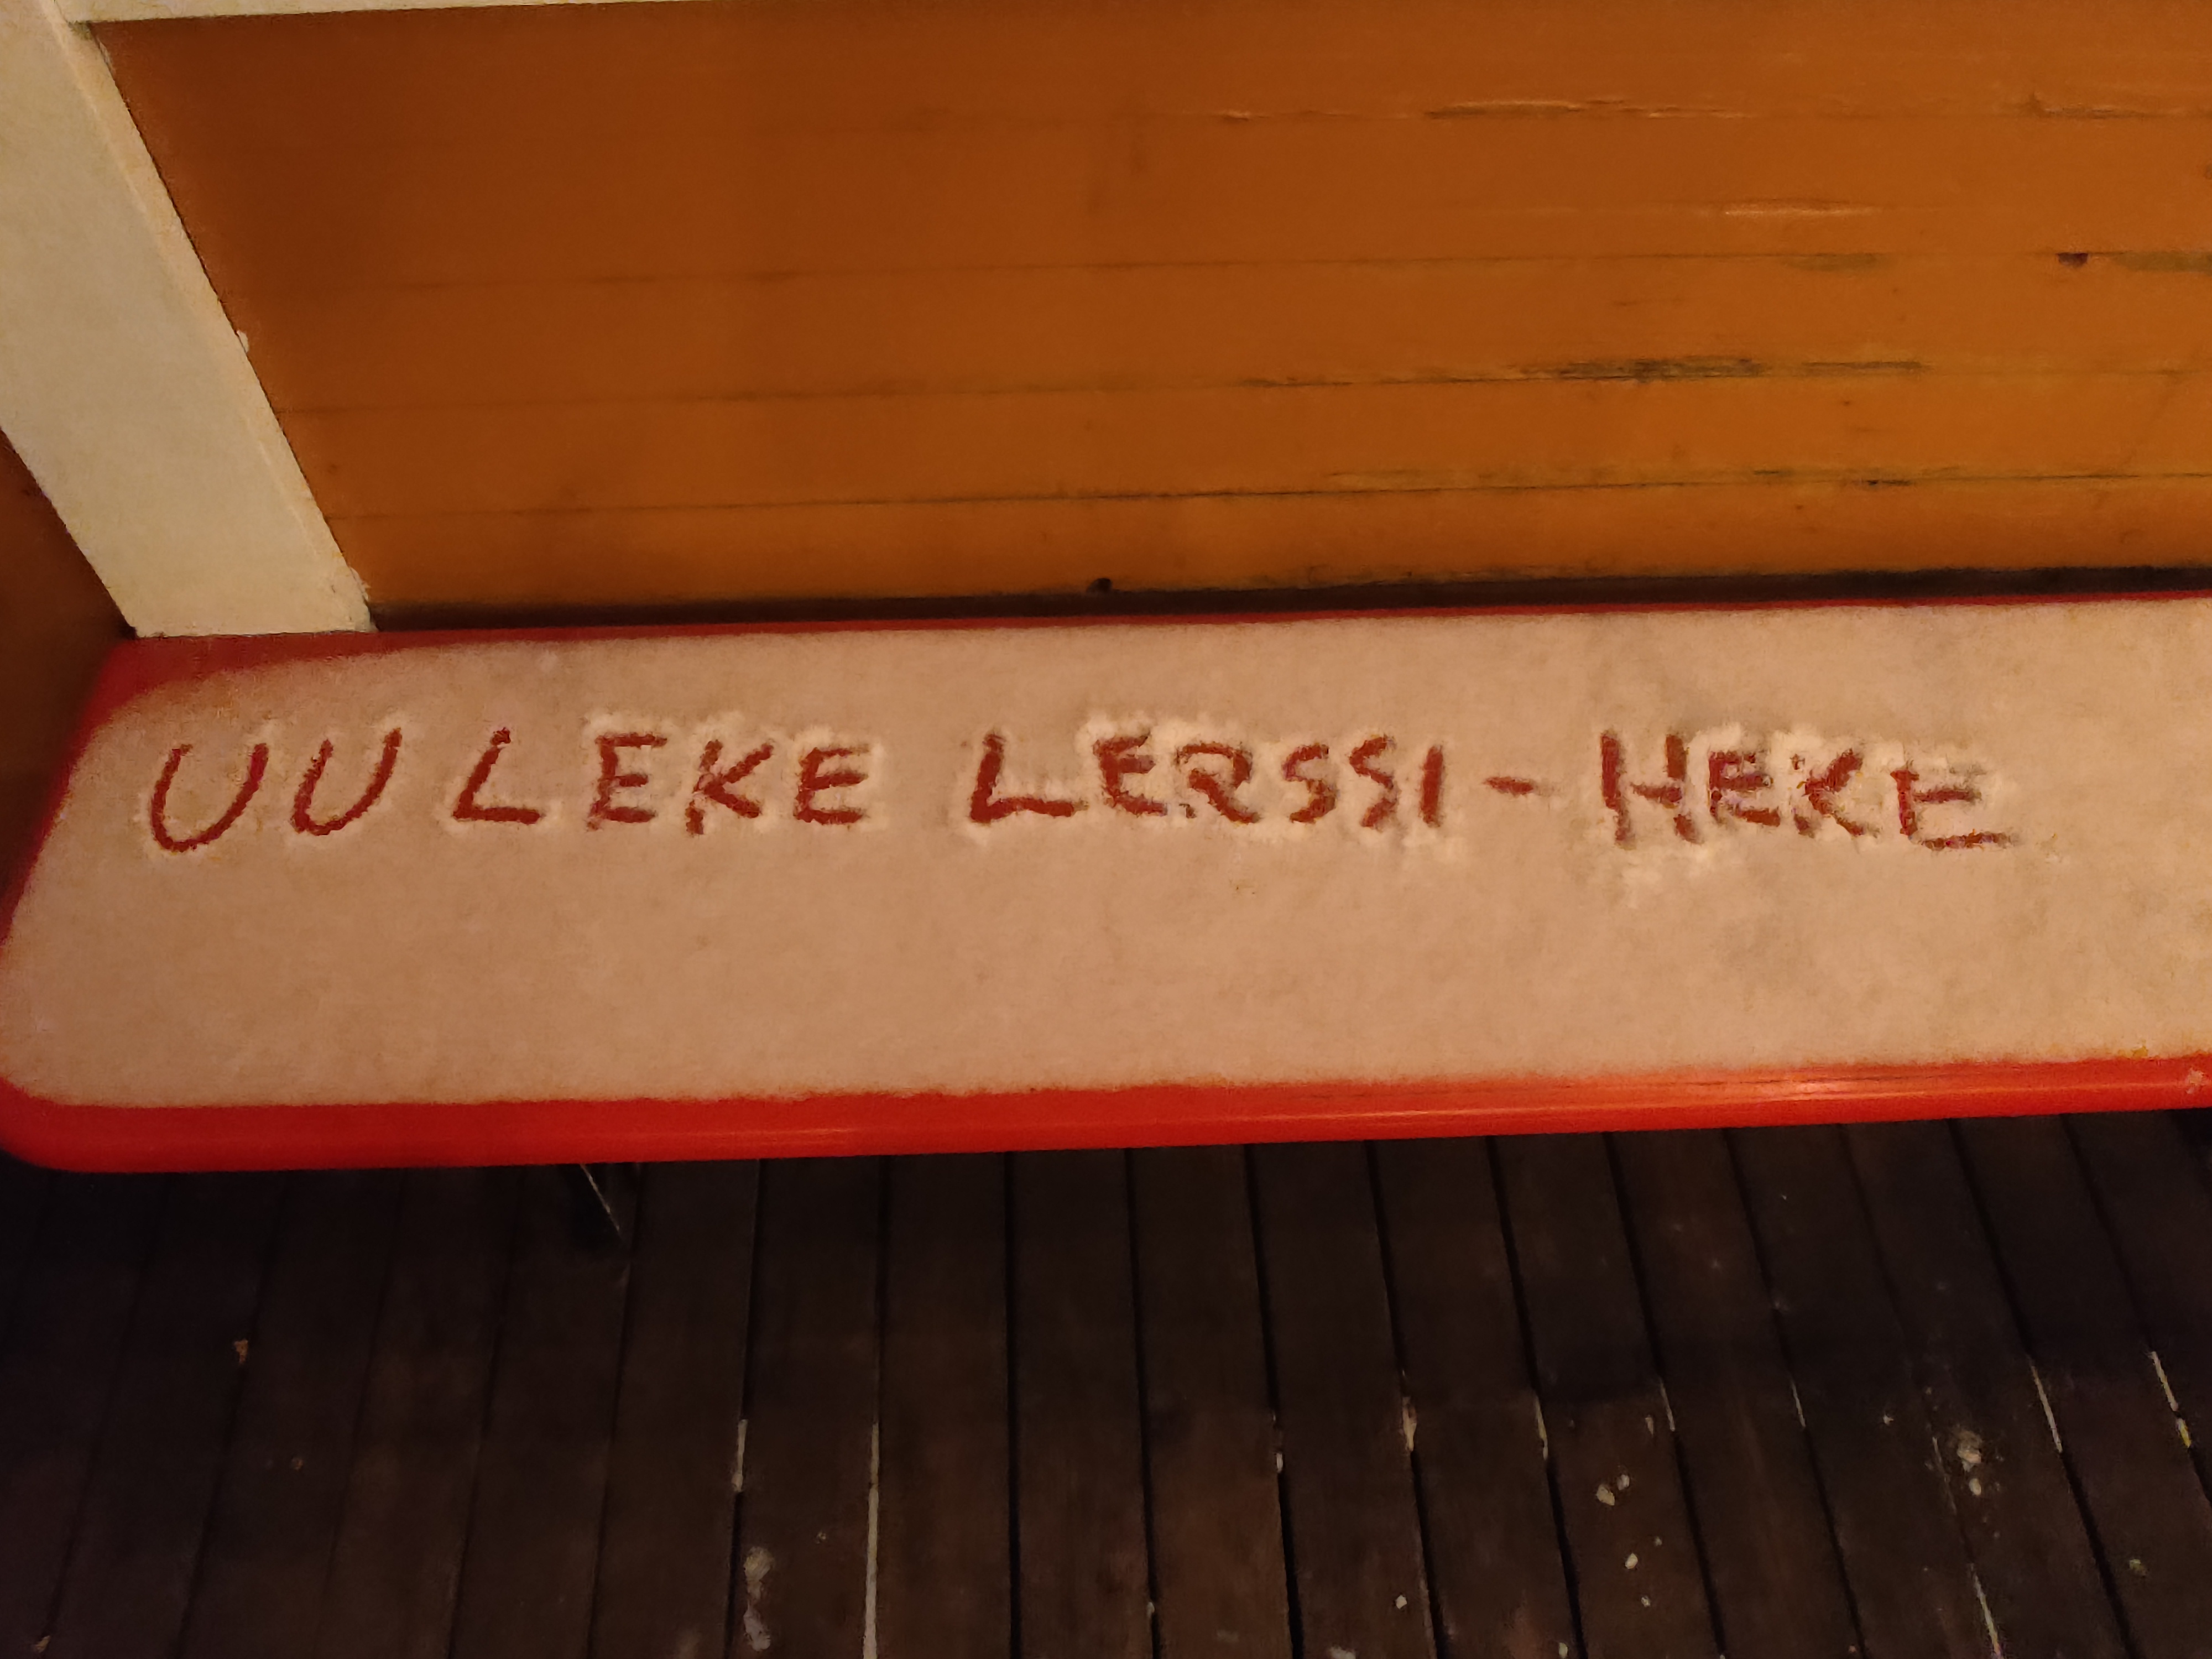 UU LEKE LERSSI-HEKE